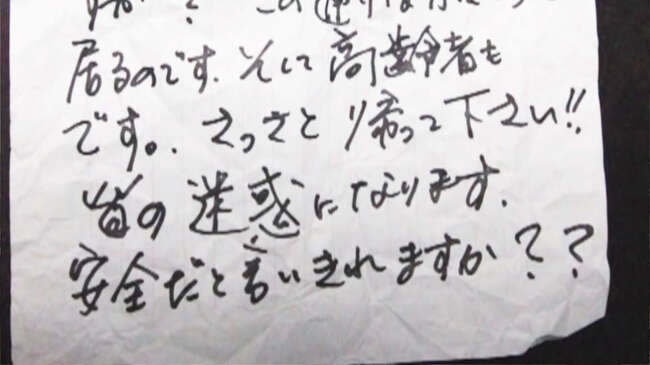 すか? この通りは
居るのです。そして高齢者も
です。。さっさと帰って下さい!!
皆の迷惑になります。
安全だと言いきれますか??